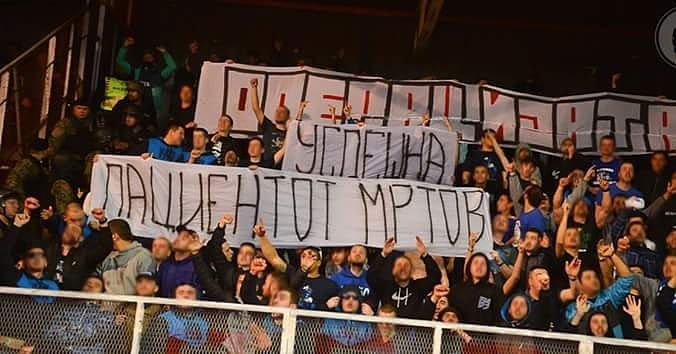 ОПЕРАЦИЈАТА
УСПЕШНА
ПАЦИЕНТОТ МРТОВ